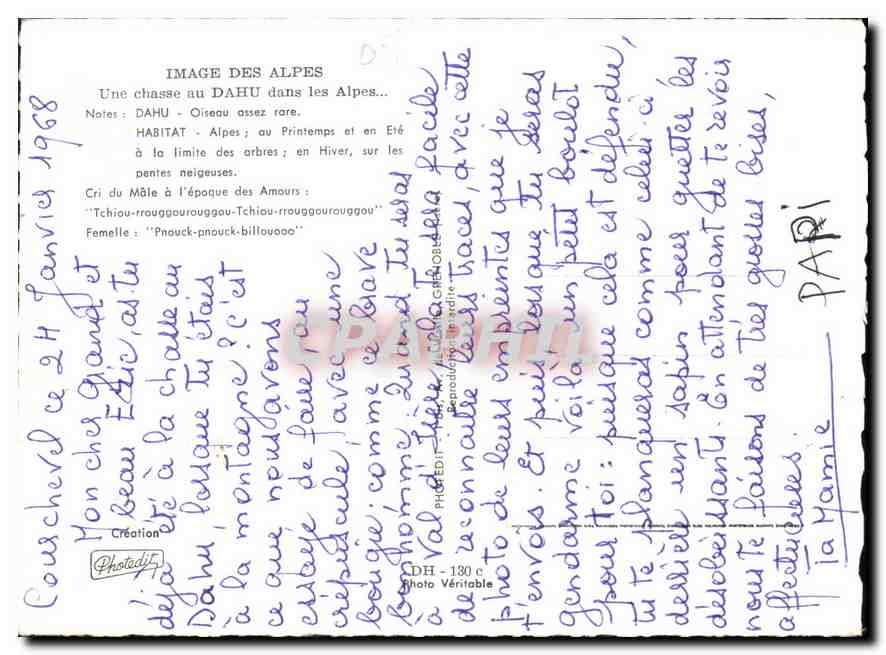 IMAGE DES ALPES
Une chasse au DAHU dans les Alpes...
Notes : DAHU - Oiseau assez rare.
HABITAT - Alpes ; au Printemps et en Eté
à la limite des arbres ; en Hiver, sur les
pentes neigeuses.
Cri du Mâle à l'époque des Amours :
"Tchiou-rrouggourouggou-Tchiou-rrouggourouggou"
Femelle : "Pnouck-pnouck-billouooo"
Création
Photedit
PHOTEDIT GRENOBLE
Reproduction interdite
DH - 130 c
Photo Véritable
Courchevel ce 24 Janvier 1968
Mon cher grand et
beau Eric, as-tu
déja été à la chasse au
Dahu, lorsque tu étais
à la montagne ? c'est
ce que nous avons
essayé de faire, au
crépuscule, avec une
bougie : comme ce brave
bonhomme. Quand tu seras
à Val d'Isère cela te sera facile
de reconnaître leurs traces, avec cette
photo de leurs empreintes que je
t'envois. Et puis lorsque tu seras
gendarme voilà un petit boulot
pour toi : puisque cela est défendu,
tu te planqueras comme celui-ci
derrière un sapin pour guetter les
désobéissants. En attendant de te revoir
nous te faisons de très grosses bises,
affectueuses.
Ta Mamie
PAPi
CPARHTI